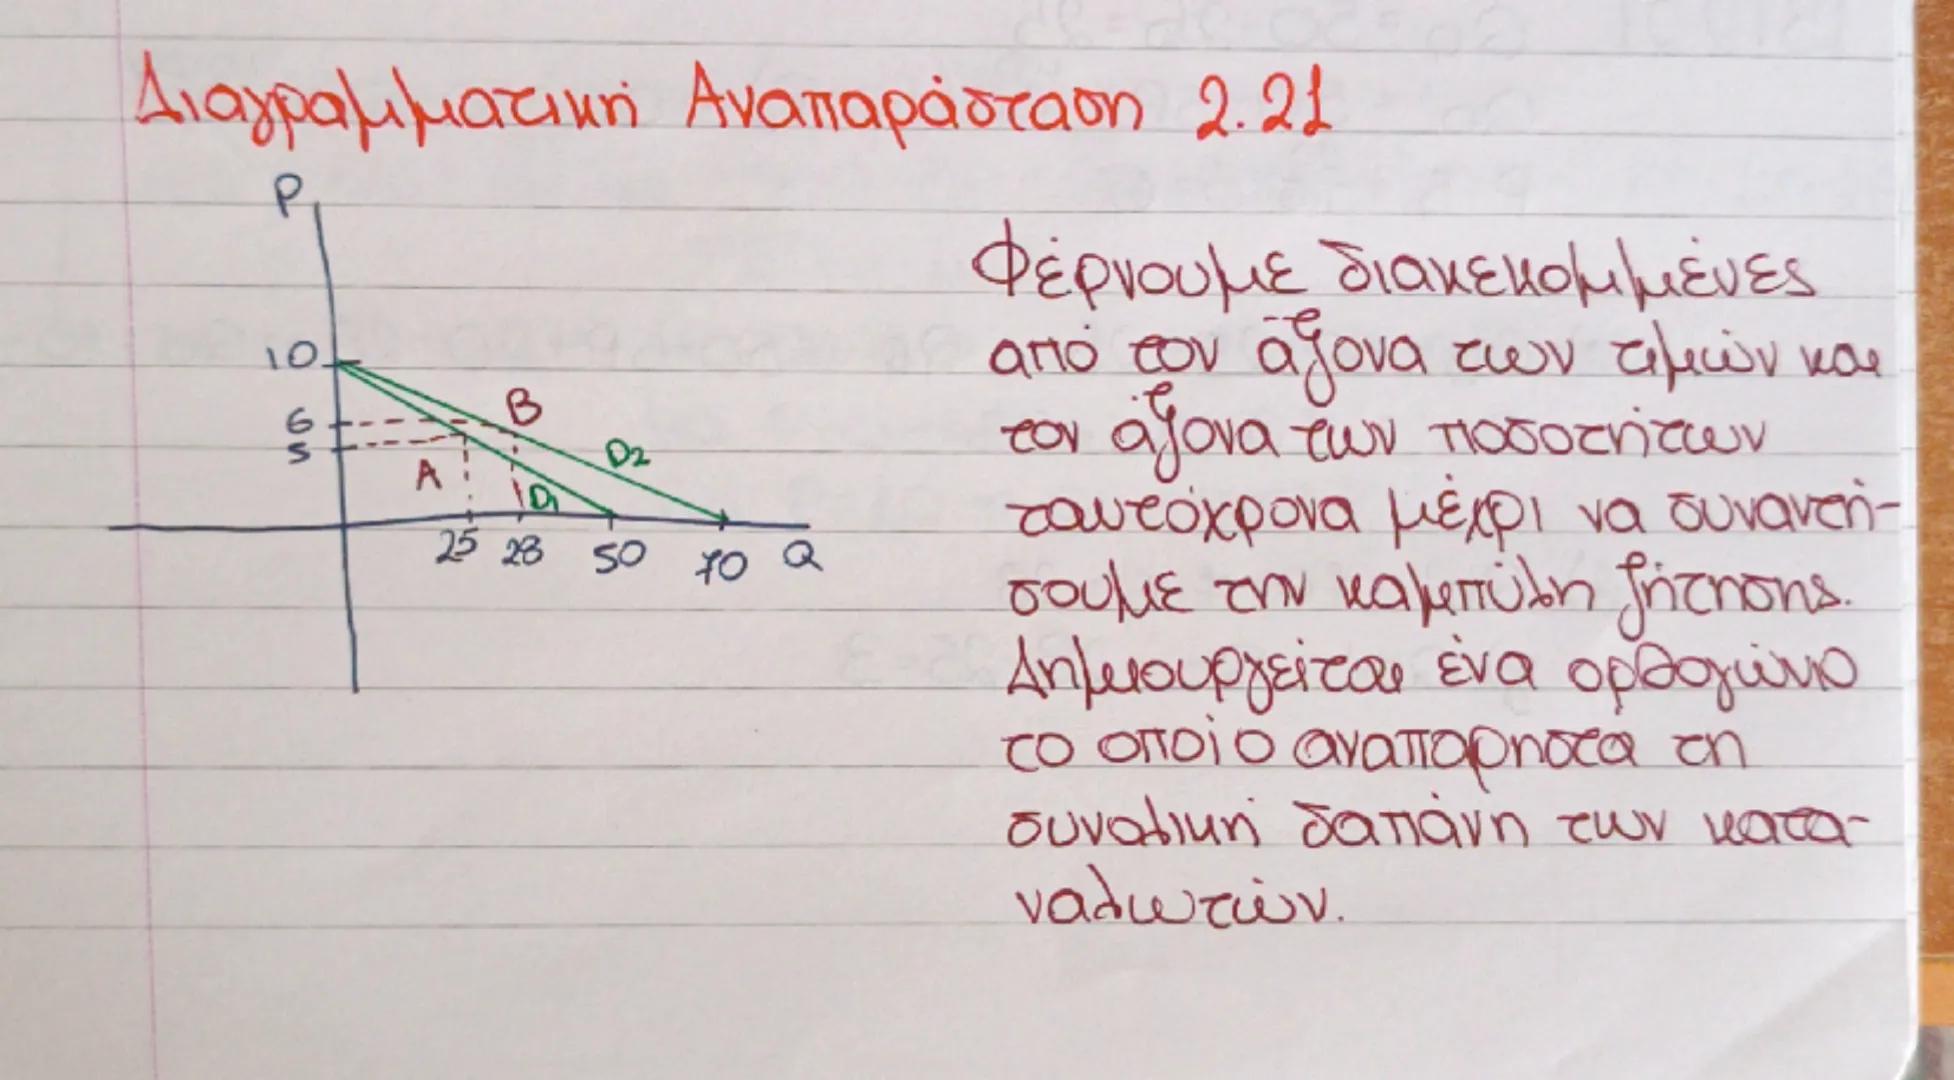 Διαγραμματική Αναπαράσταση 2.21
P
10
6
5
B
A
D2
D1
25 28 50 70 Q
Φέρνουμε διακεκομμένες
από τον άξονα των τιμών και
τον άξονα των ποσοτήτων
ταυτόχρονα μέχρι να συναντή-
σουμε την καμπύλη ζήτησης.
Δημιουργείται ένα ορθογώνιο
το οποίο αναπαρηστά τη
συνολική δαπάνη των κατα-
ναλωτών.